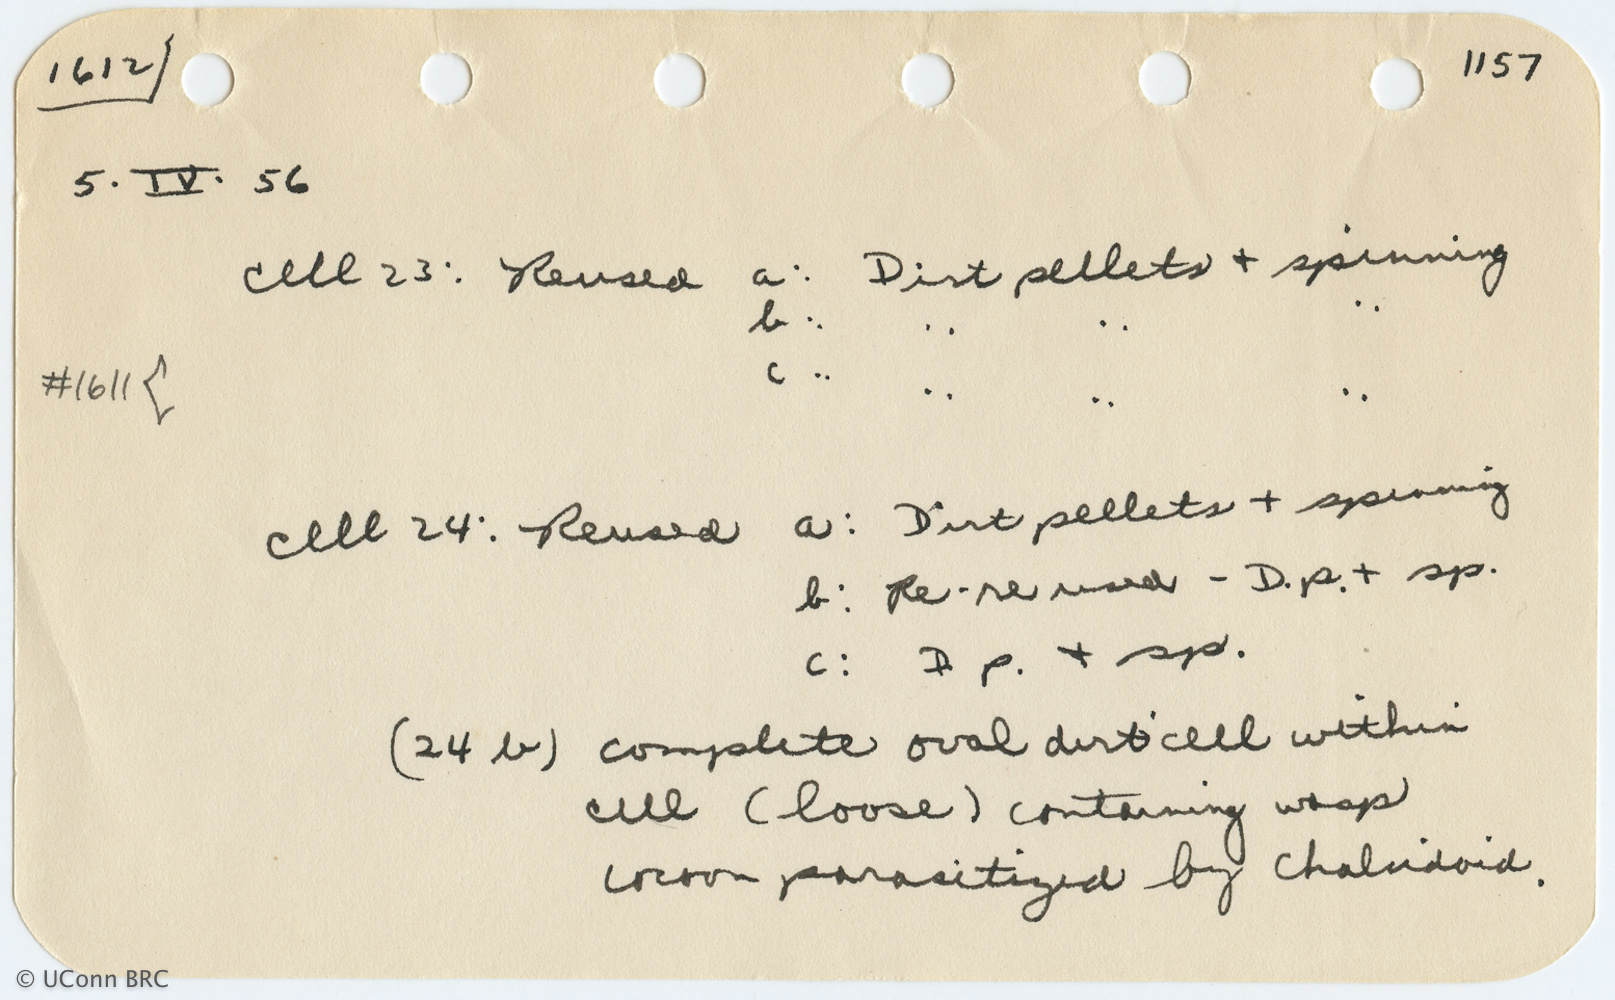 1612
1157
5. IV. 56
cell 23: Reused a: Dirt pellets + spinning
b: " " "
c " " " "
#1611 {
cell 24: Reused a: Dirt pellets + spinning
b: Re-reused - D.p. + sp.
c: D p. + sp.
(24 b) complete oval dirt cell within
cell (loose) containing wasp
cocoon parasitized by Chalcidoid.
© UConn BRC